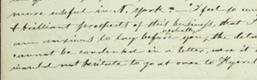 more useful in N. York? I feel so con
& brilliant prospects of this business, that I
am anxious to lay before you, verbally, the deta
cannot be condensed in a letter, were it n
would not hesitate to go at once to